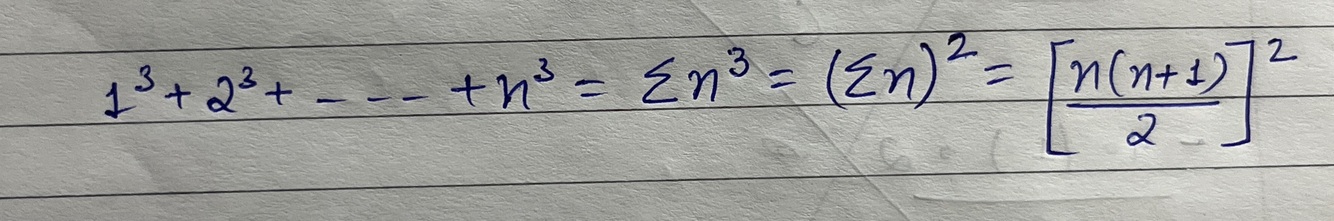 1³ + 2³ + - - - - + n³ = Σn³ = (Σn)² = [n(n+1)/2]²